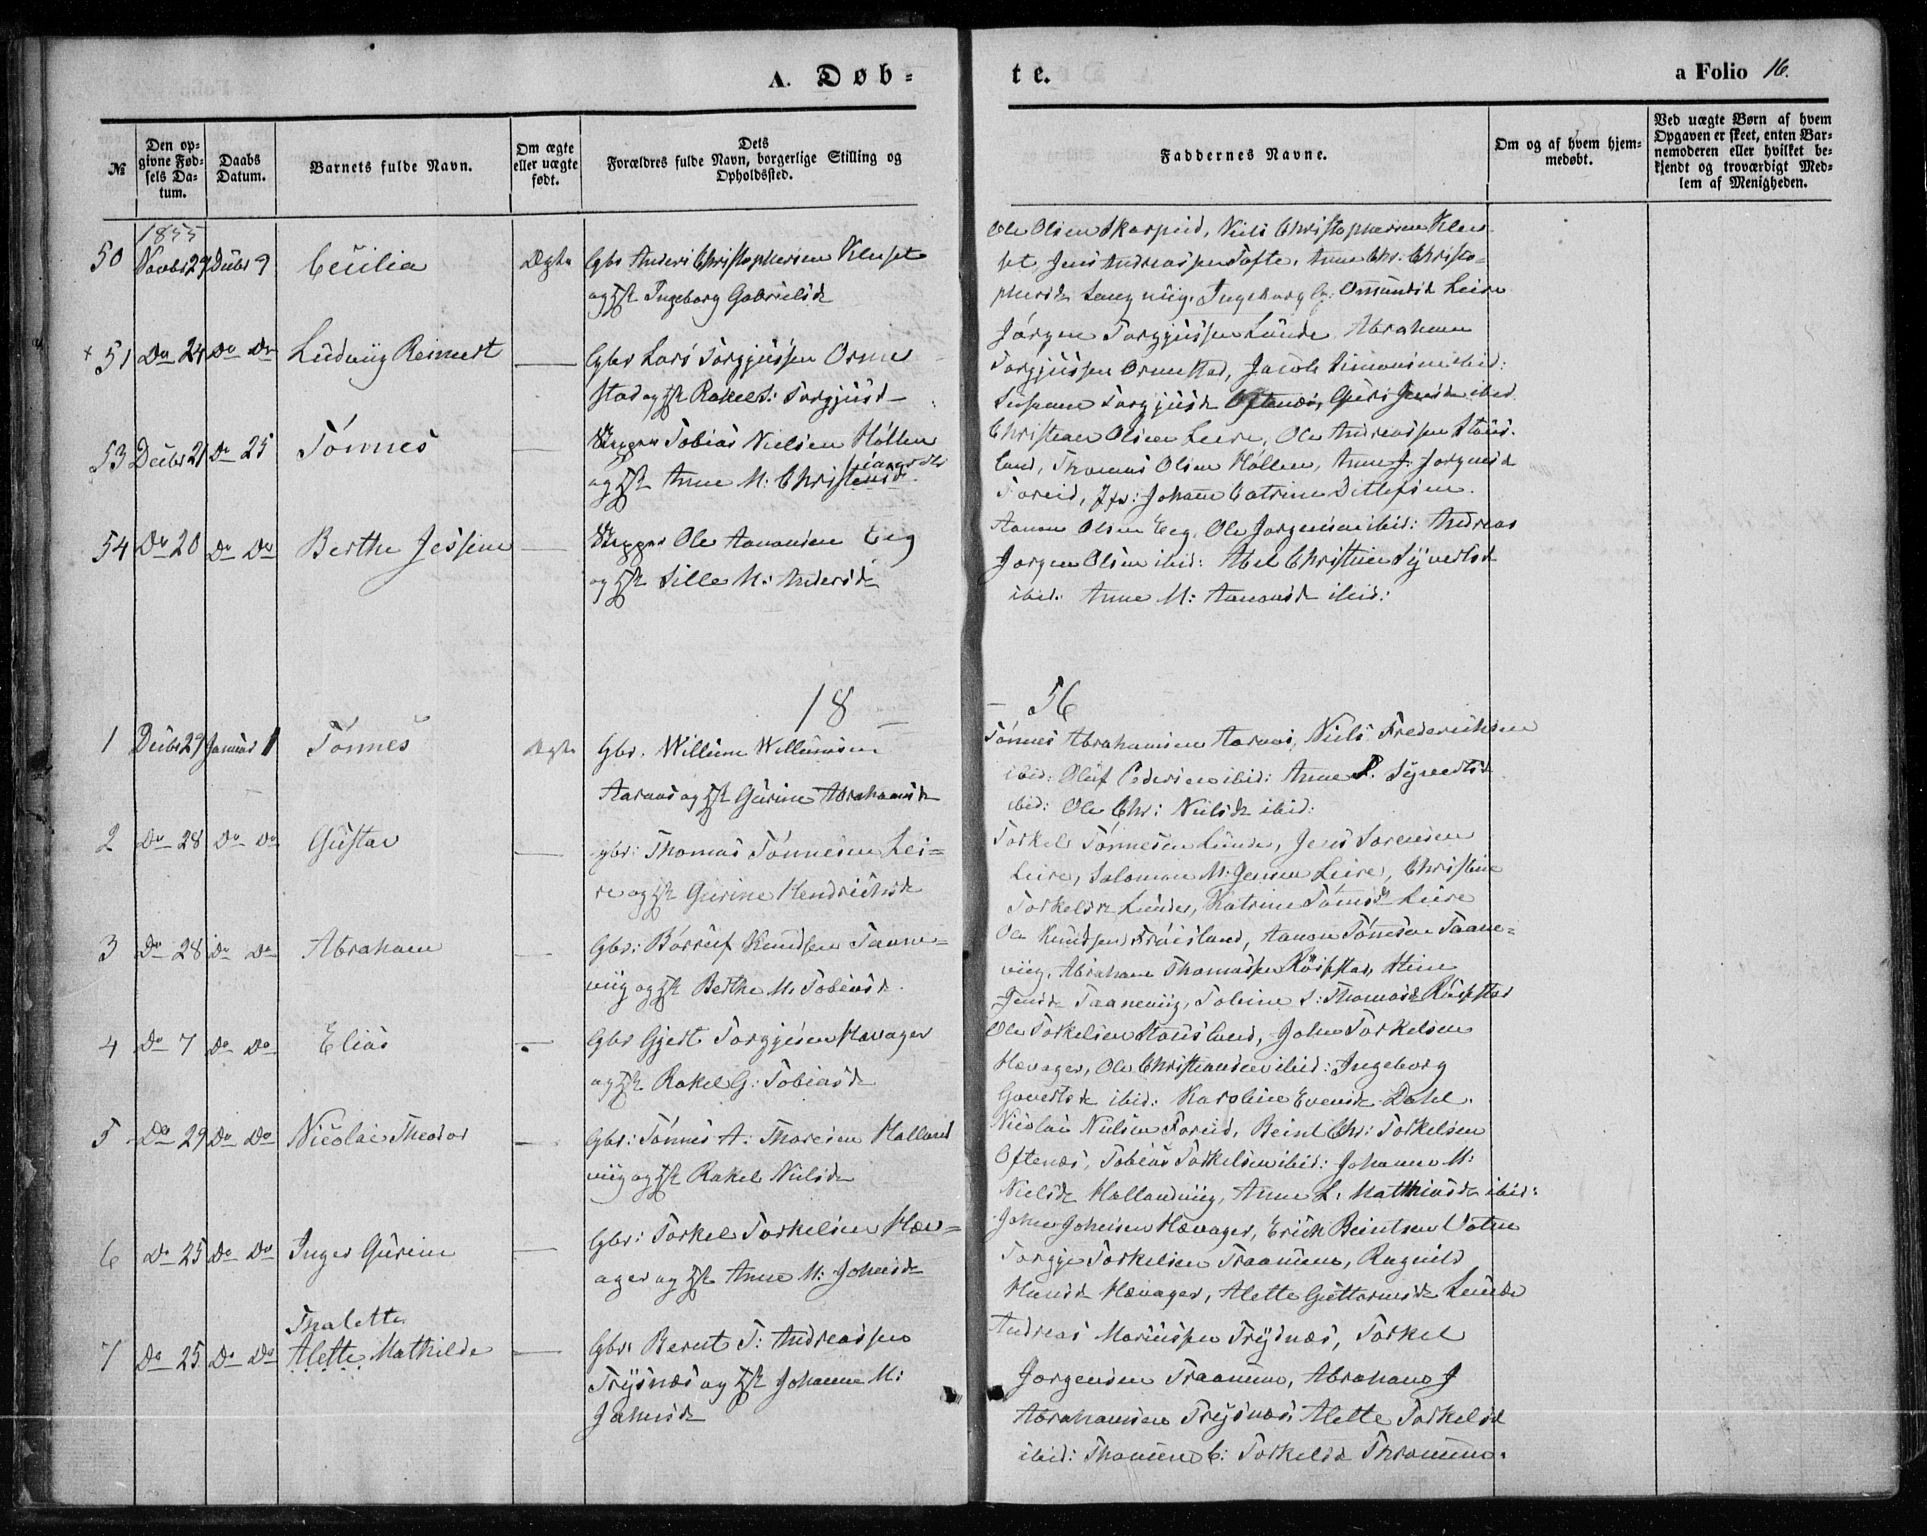 A. Døb-
te.
a Folio 16.
№
Den opgivne Fødsels Datum.
Daabs Datum.
Barnets fulde Navn.
Om ægte eller uægte født.
Dets Forældres fulde Navn, borgerlige Stilling og Opholdssted.
Faddernes Navne.
Om og af hvem hjemmedøbt.
Ved uægte Børn af hvem Opgaven er skeet, enten Barnemoderen eller hvilket bekjendt og troværdigt Medlem af Menigheden.
1855
50 Novbr 29 Decbr 9 Cecilia Ægte Gbr Anders Christophersen Kleuset
og Hst Ingeborg Gabrielsd
Ole Olsen Skarpeid, Niels Christophersen Kleu-
set Jens Andreassen Tofte, Anne Chr. Christo-
phersd Langviig, Ingeborg G. Osmundsd Leire
+ 51 Do 24 Do Do Ludviig Reinert — Gbr Lars Torgjussen Orme
stad og Hst Rakel S: Torgjusd
Jörgen Torgjussen Lunde, Abraham
Torgjussen Ormestad, Jacob Simonsen ibid:
Susanne Torgjusd Oftenes, Guri Jensd ibid
53 Decbr 21 Do 25 Tönnes — Tobias Nielsen Höllen
og Hst Anne M: Christensd
Christian Olsen Leire, Ole Andreassen Staus-
land, Thomas Olsen Höllen, Anne J. Jorgensd
Foreid, Jfr: Johanne Catrine Ditlefsen.
54 Do 20 Do Do Berthe Jessine — Ole Aanonsen Eeg
og Hst Sille M: Andersd
Aanon Olsen Eeg, Ole Jorgensen ibid: Andreas
Jorgen Olsen ibid: Abel Christine Syvertsd
ibid: Anne M: Aanonsd ibid:
18 — 56
1 Decbr 29 Januar 1 Tönnes Ægte Gbr. Willum Willumsen
Aaraas og Hst Gurine Abrahamsd
Tönnes Abrahamsen Aaraas, Niels Frederichsen
ibid: Oluf Pedersen ibid: Anne P. Syvertsd
ibid: Ole Chr: Nielsd ibid:
2 Do 28 Do Do Gustav — gbr: Thomas Tönnesen Lei=
re og Hst Gurine Hendrichsd
Torkel Tönnesen Lunde, Jens Sorensen
Leire, Salomon M. Jensen Leire, Christine
Torkelsd Lunde, Katrine Tönnesd Leire
3 Do 28 Do Do Abraham — Gbr: Börruf Knudsen Taane=
viig og Hst Berthe M. Tobiasd.
Ole Knudsen Fröisland, Aanon Tönnesen Taane=
viig, Abraham Thomassen Röifstad, Stine
Jensd Taaneviig, Tobine S: Thomasd Röifstad
4 Do 7 Do Do Elias — Gbr Gjert Torgjesen Hævager
og Hst Rakel G. Tobiasd
Ole Torkelsen Stausland, John Torkelsen
Hævager, Ole Christiansen ibid: Ingeborg
Govertsd ibid: Karoline Evensd Dahl.
5 Do 29 Do Do Nicolai Theodor — Gbr: Tönnes A: Thoresen Halland
viig og Hst Rakel Nielsd
Nicolai Nielsen Foreid, Beint Chr: Torkelsen
Oftenæs, Tobias Torkelsen ibid: Johanne M:
Nielsd Hallandviig, Anne L: Matthiasd ibid:
6 Do 25 Do Do Inger Gurine — Gbr: Torkel Torkelsen Hæv=
ager og Hst Anne M: Johnsd
John Johnsen Hævager, Erich Beintsen Vatne
Torgje Torkelsen Traanum, Ragnild
Hansd Hævager, Alette Guttormsd Lunde
Thalette
7 Do 25 Do Do Alette Mathilde — Gbr: Bernt T: Andreassen
Trysnæs og Hst Johanne M:
Jahnsd
Andreas Mariussen Trysnæs, Torkel
Jorgensen Traanum, Abraham J
Abrahamsen Trysnæs, Alette Torkelsd
ibid: Thomine C: Torkelsd Thraanum.